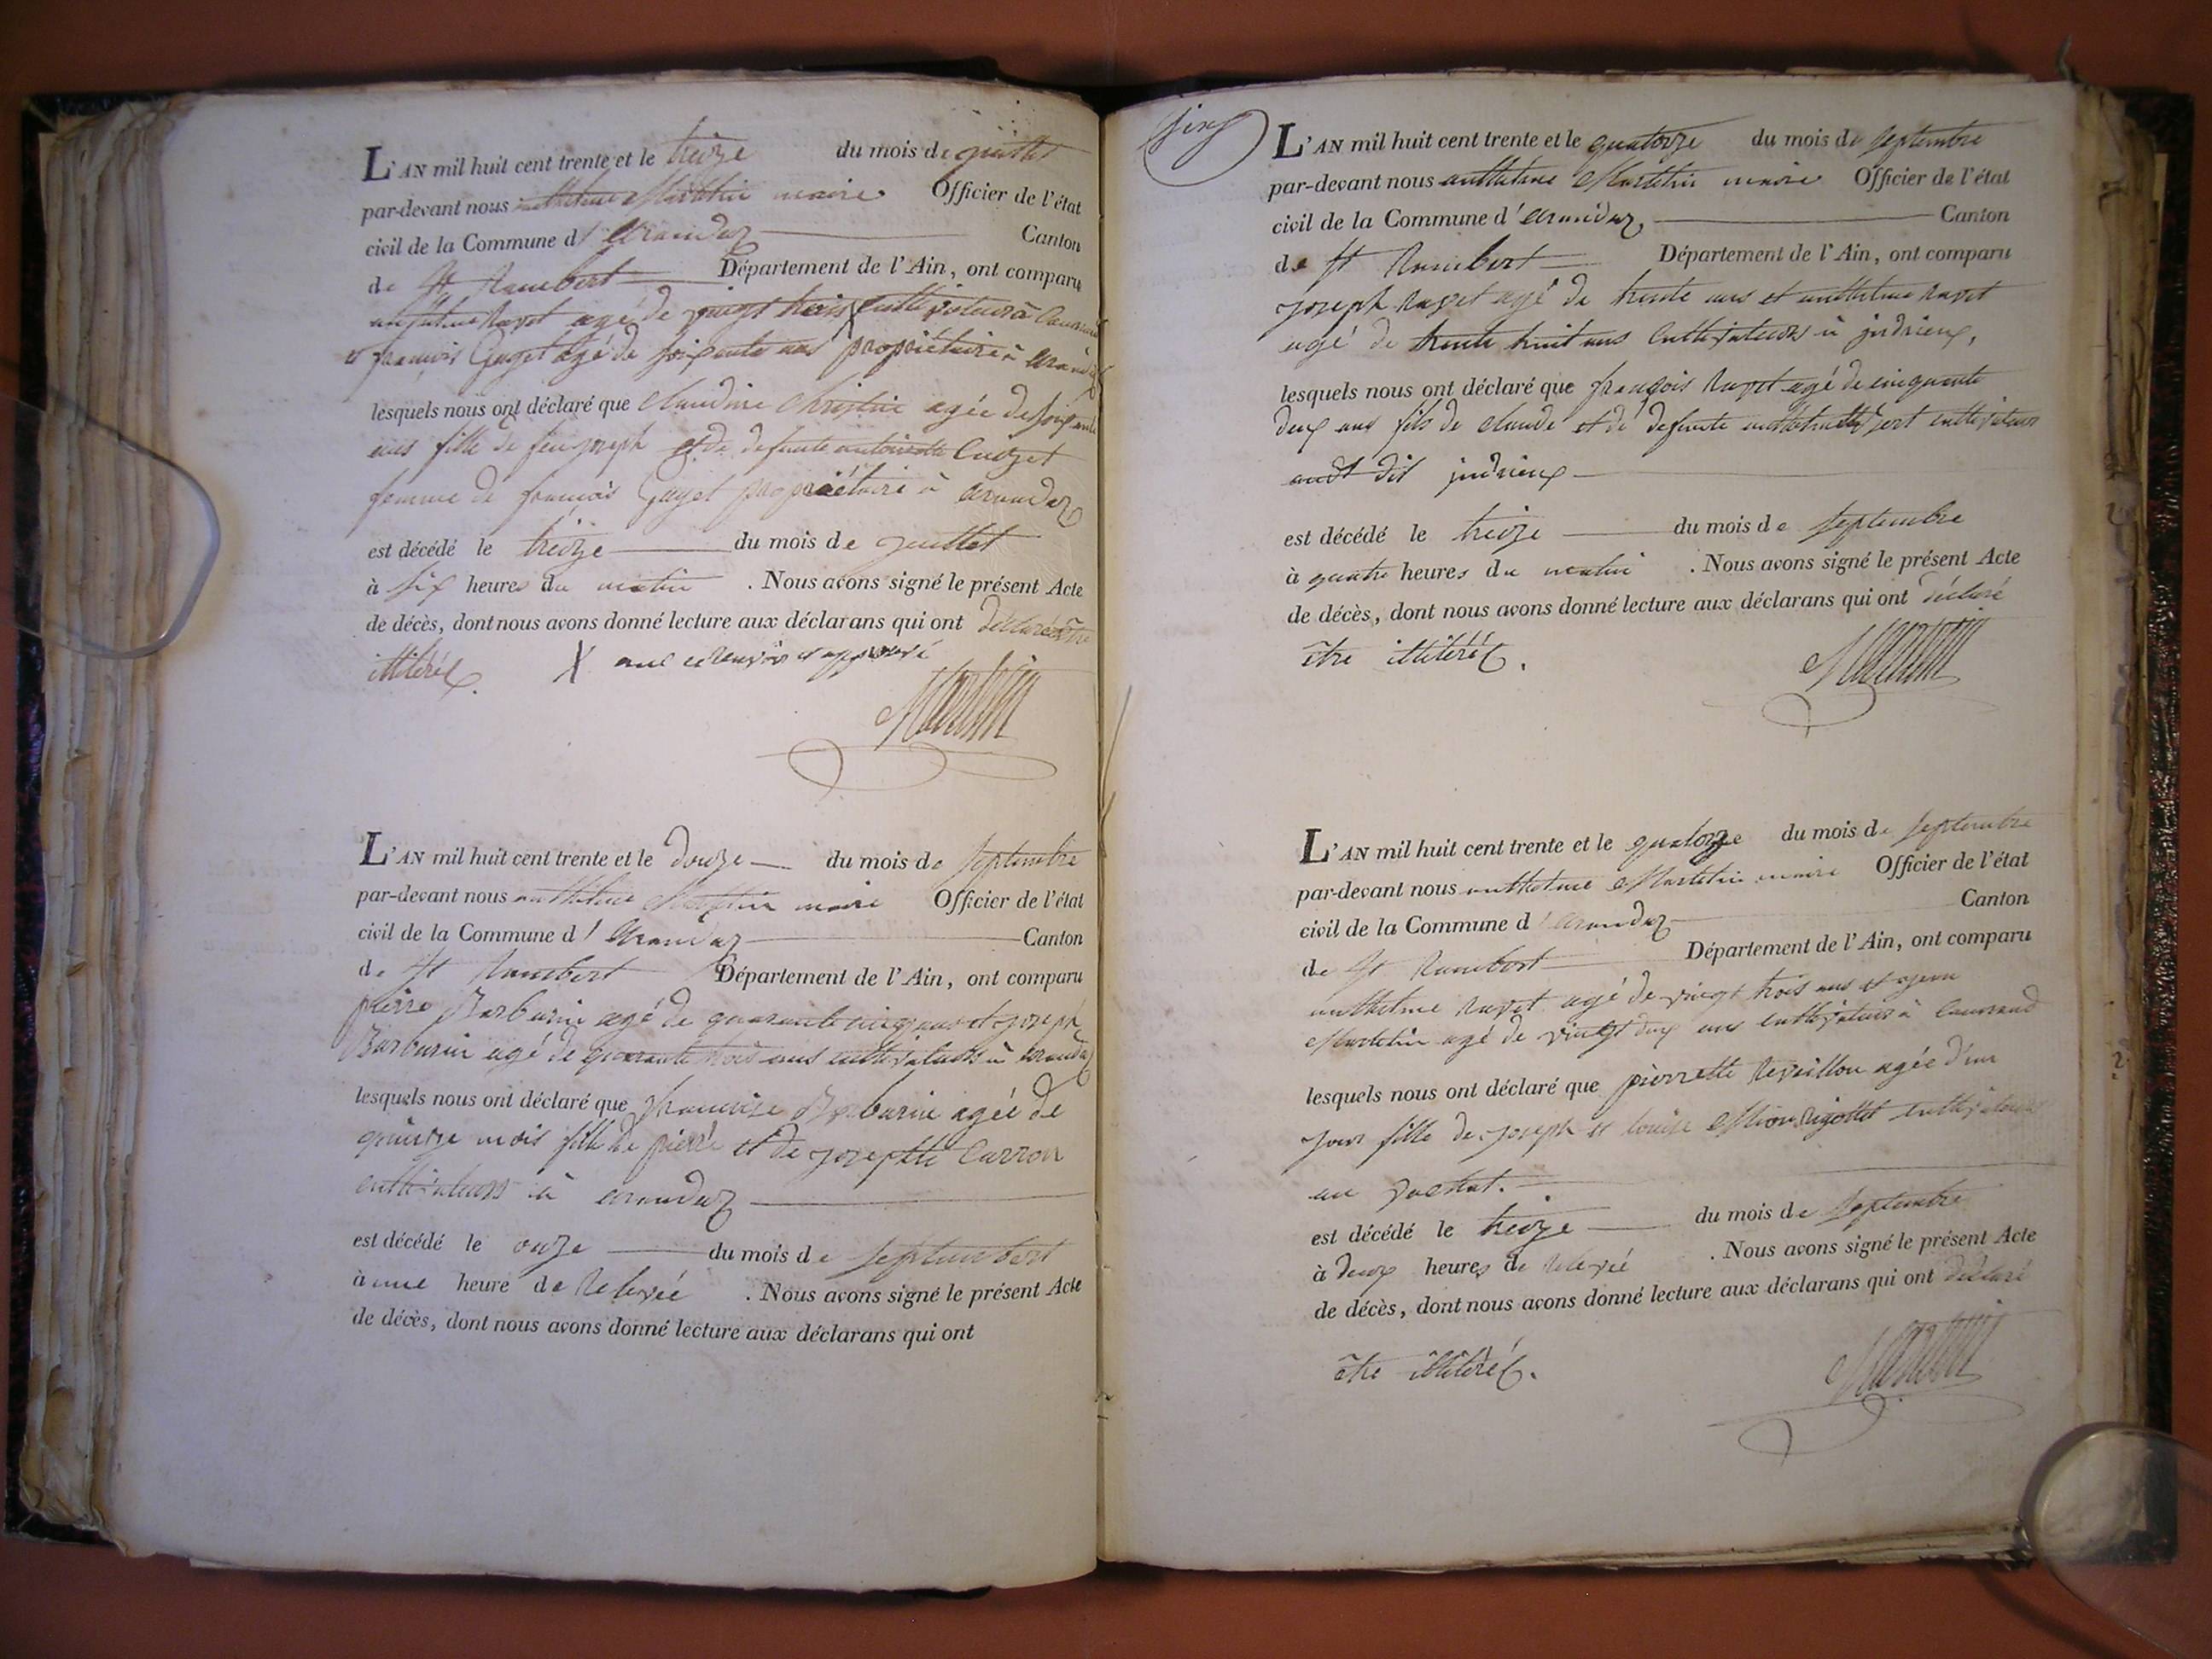 L'AN mil huit cent trente et le treize du mois de juillet
par-devant nous anthelme Martelin maire Officier de l'état
civil de la Commune d'arandaz Canton
de St Rambert Département de l'Ain, ont comparu
anthelme Ravet agé de vingt trois X cultivateur à
et françois Gayet agé de soixante ans propriétaire à arandaz
lesquels nous ont déclaré que claudine Christin agée de soixante
ans fille de feu joseph et de defunte antoinette Cuozet
femme de françois Gayet propriétaire à arandaz
est décédé le treize du mois de juillet
à six heures du matin . Nous avons signé le présent Acte
de décès, dont nous avons donné lecture aux déclarans qui ont déclaré être
illitérés. X ans et renvoi approuvé
Martelin
L'AN mil huit cent trente et le douze du mois de septembre
par-devant nous anthelme Martelin maire Officier de l'état
civil de la Commune d'arandaz Canton
de St Rambert Département de l'Ain, ont comparu
pierre Barbarin agé de quarante cinq ans et joseph
Barbarin agé de quarante trois ans cultivateurs à arandaz
lesquels nous ont déclaré que françoise Barbarin agée de
quinze mois fille de pierre et de josephte Carron
cultivateurs à arandaz
est décédé le onze du mois de septembre
à une heure de Relevée . Nous avons signé le présent Acte
de décès, dont nous avons donné lecture aux déclarans qui ont
six
L'AN mil huit cent trente et le quatorze du mois de septembre
par-devant nous anthelme Martelin maire Officier de l'état
civil de la Commune d'arandaz Canton
de St Rambert Département de l'Ain, ont comparu
joseph Ravet agé de trente ans et anthelme Ravet
agé de trente huit ans cultivateurs à indrieux,
lesquels nous ont déclaré que françois Ravet agé de cinquante
deux ans fils de claude et de defunte cultivateur
audt dit indrieux
est décédé le treize du mois de septembre
à quatre heures du matin . Nous avons signé le présent Acte
de décès, dont nous avons donné lecture aux déclarans qui ont déclaré
être illitérés.
Martelin
L'AN mil huit cent trente et le quatorze du mois de septembre
par-devant nous anthelme Martelin maire Officier de l'état
civil de la Commune d'arandaz Canton
de St Rambert Département de l'Ain, ont comparu
anthelme Ravet agé de vingt trois ans et jean
Martelin agé de vingt deux ans cultivateurs à
lesquels nous ont déclaré que pierrette Revillon agée d'un
jour fille de joseph et louise Mion Rigottet cultivateurs
au
est décédé le treize du mois de septembre
à deux heures de relevée . Nous avons signé le présent Acte
de décès, dont nous avons donné lecture aux déclarans qui ont déclaré
être illitérés.
Martelin